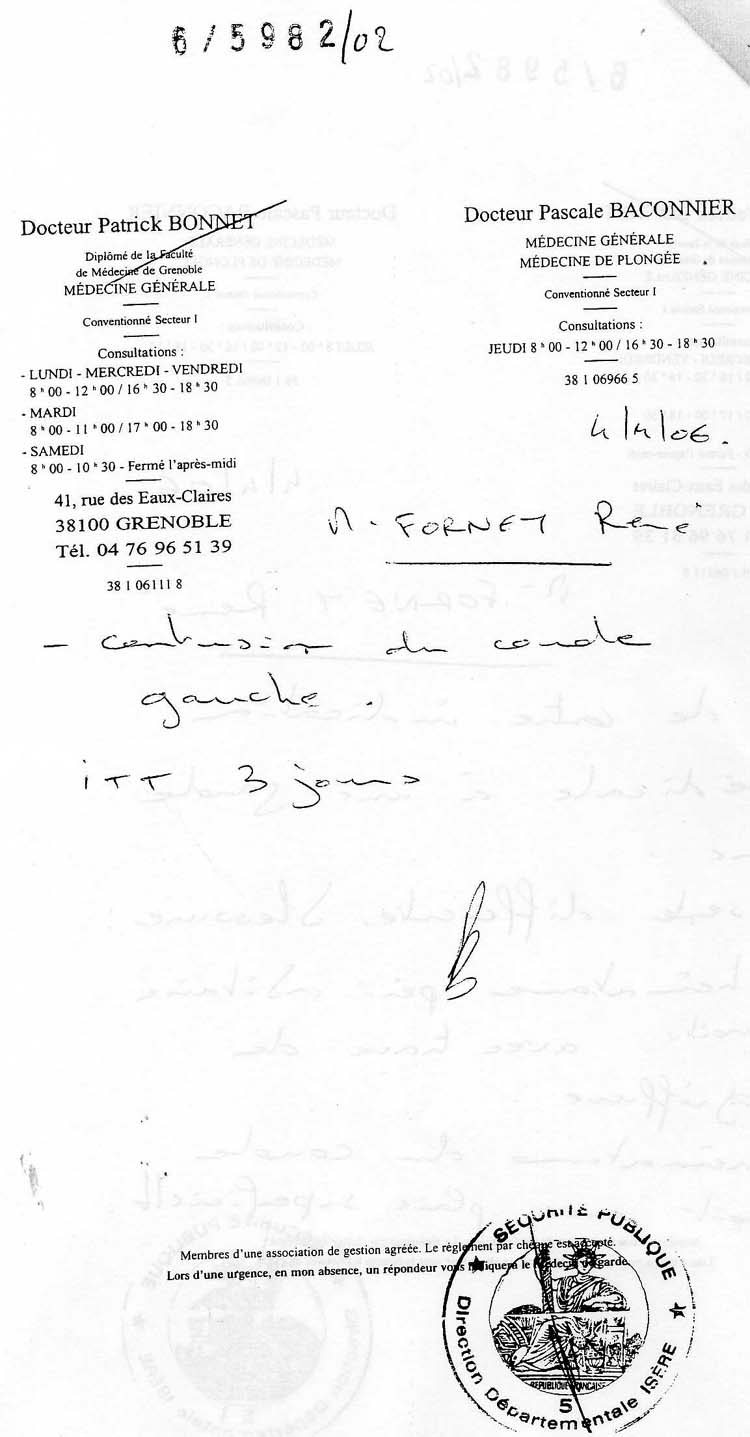 6/5982/02
Docteur Patrick BONNET
Diplômé de la Faculté
de Médecine de Grenoble
MÉDECINE GÉNÉRALE
Conventionné Secteur I
Consultations :
- LUNDI - MERCREDI - VENDREDI
8 h 00 - 12 h 00 / 16 h 30 - 18 h 30
- MARDI
8 h 00 - 11 h 00 / 17 h 00 - 18 h 30
- SAMEDI
8 h 00 - 10 h 30 - Fermé l'après-midi
41, rue des Eaux-Claires
38100 GRENOBLE
Tél. 04 76 96 51 39
38 1 06111 8
Docteur Pascale BACONNIER
MÉDECINE GÉNÉRALE
MÉDECINE DE PLONGÉE
Conventionné Secteur I
Consultations :
JEUDI 8 h 00 - 12 h 00 / 16 h 30 - 18 h 30
38 1 06966 5
4/4/06.
M. FORNEY René
- contusion du coude
gauche.
ITT 3 jours
Membres d'une association de gestion agréée. Le règlement par chèque est accepté.
Lors d'une urgence, en mon absence, un répondeur vous indiquera le médecin de garde.
SÉCURITÉ PUBLIQUE
RÉPUBLIQUE FRANÇAISE
5
Direction Départementale ISÈRE